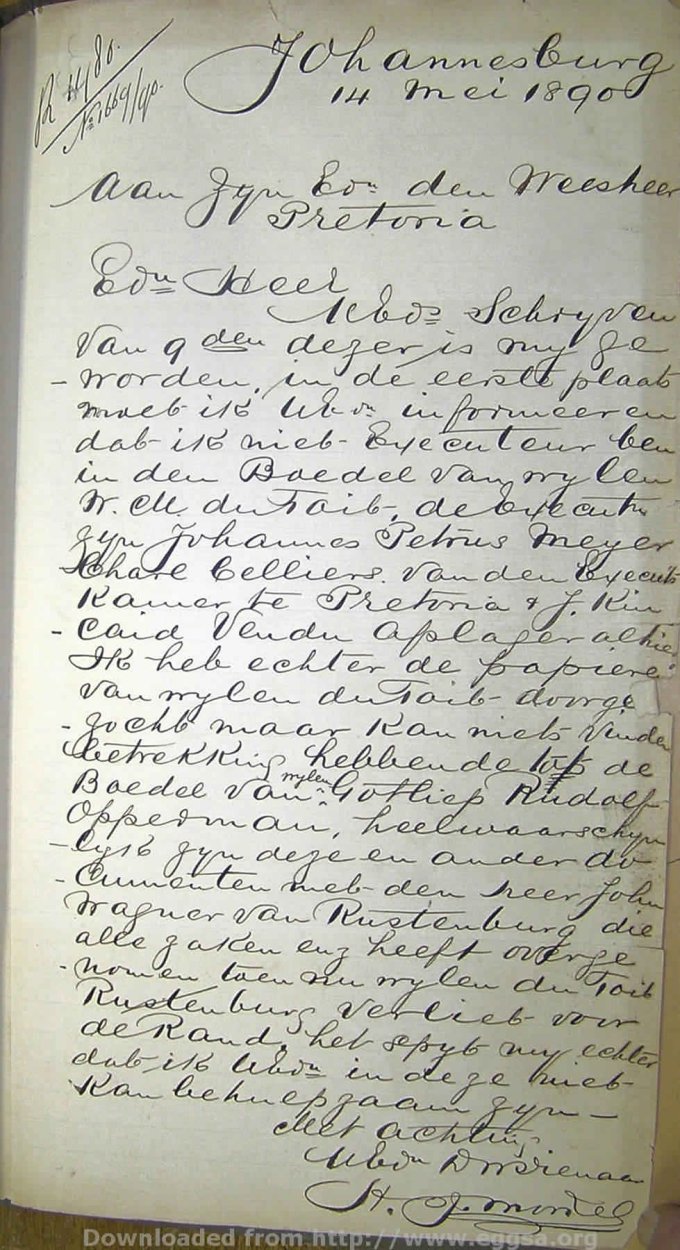 R 4480.
No. 1669/90.
Johannesburg
14 Mei 1890
Aan Zyn Edn den Weesheer
Pretoria
Edn Heer
UEds Schryven
van 9 den dezer is my ge
- worden, in de eerste plaats
moet ik UEdn informeeren
dat ik niet Executeur ben
in den Boedel van wylen
W. M. du Toit, de Execut
zyn Johannes Petrus Meyer
Charl Celliers. van den Execut
Kamer te Pretoria & J. Kin
- caid Vendu Afslager alhier
Ik heb echter de papiere
van wylen du Toit doorge
- zocht maar kan niets vinden
betrekking hebbende tot de
Boedel van wylen Gotliep Rudolf
Opperman, heelwaarschyn
- lyk zyn deze en ander do
- cumenten met den heer John
Wagner van Rustenburg die
alle zaken enz heeft overge
- nomen toen nu wylen du Toit
Rustenburg verliet voor
de Rand. het spyt my echter
dat ik UEdn in deze niet
kan behulpzaam zyn -
Met achting
UEdn Dvsdienaar
H. J.
Downloaded from http://www.eggsa.org